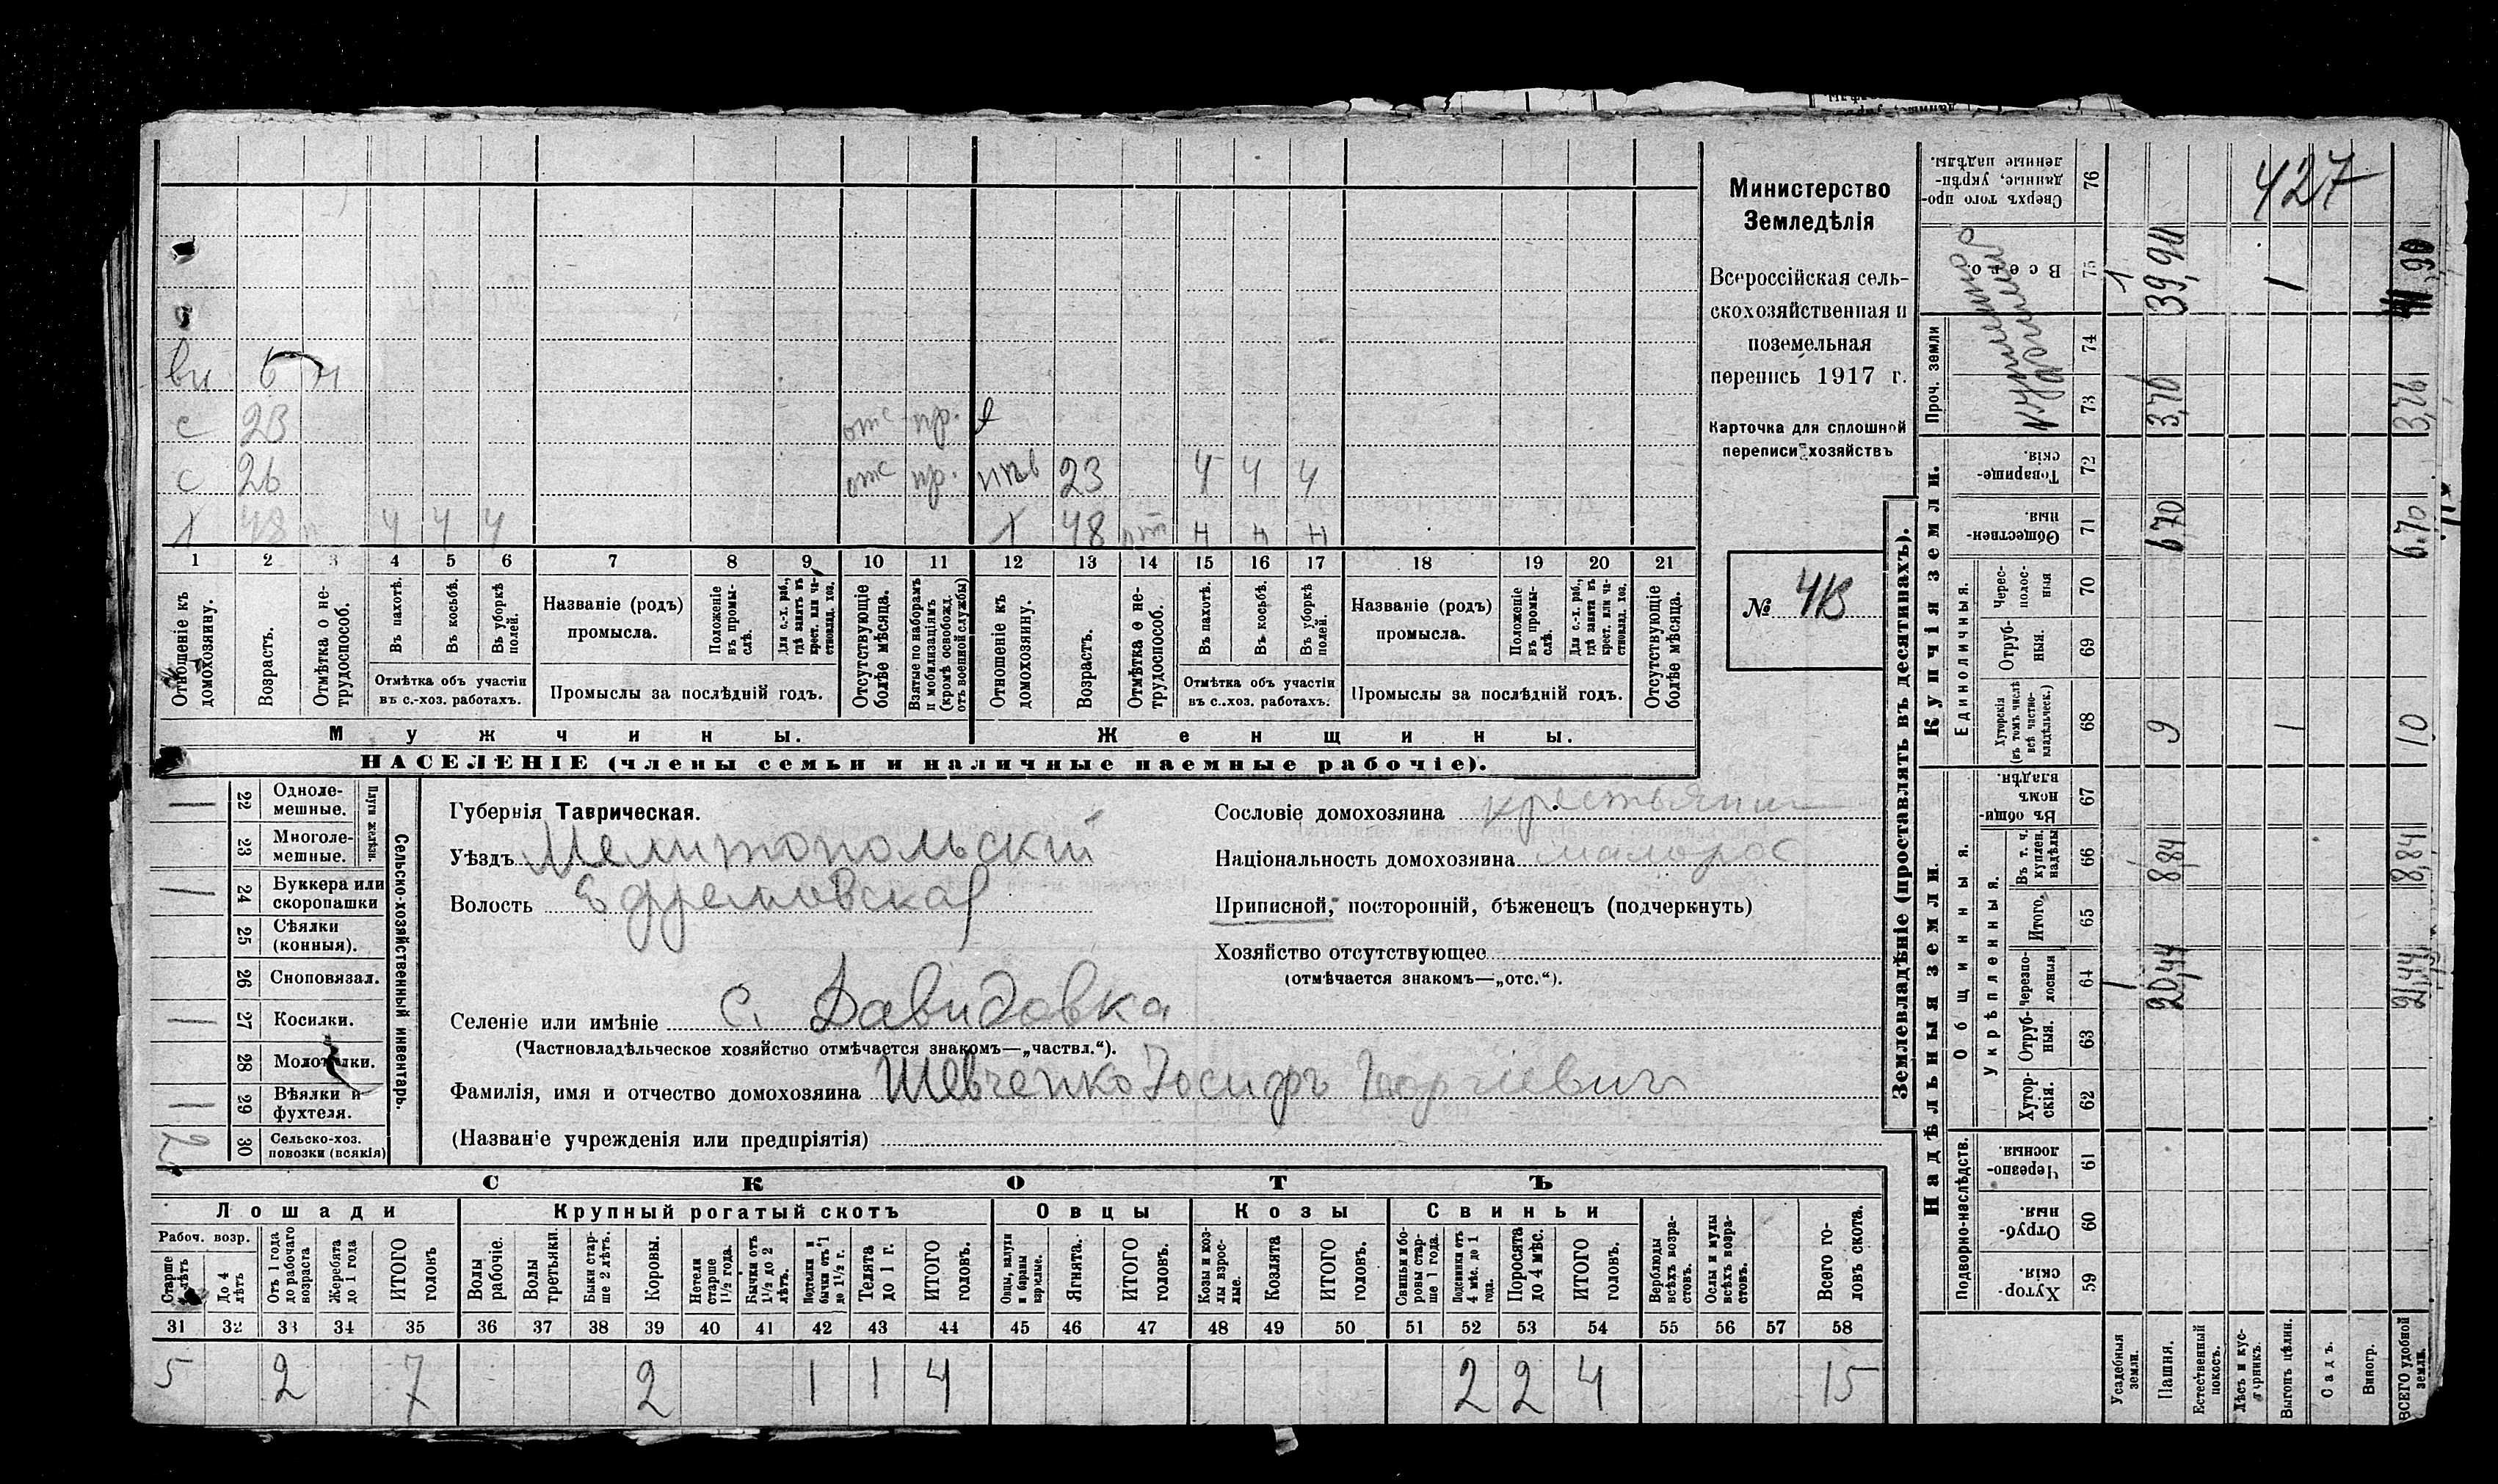 427
Министерство
Земледѣлія
Всероссійская сель-
скохозяйственная и
поземельная
перепись 1917 г.
Карточка для сплошной
переписи хозяйствъ
№ 413
вн 6
с 23 отс пр.
с 26 отс пр. нев 23 ч ч ч
х 48 ч ч ч х 48 н н н
1 2 3 4 5 6 7 8 9 10 11 12 13 14 15 16 17 18 19 20 21
Отношеніе къ домохозяину.
Возрастъ.
Отмѣтка о не-трудоспособ.
Въ пахотѣ.
Въ косьбѣ.
Въ уборкѣ полей.
Отмѣтка объ участіи
въ с.-хоз. работахъ.
Названіе (родъ)
промысла.
Положеніе въ промы-слѣ.
Для с.-х. раб., гдѣ занятъ въ крест. или ча-стновлад. хоз.
Промыслы за послѣдній годъ.
Отсутствующіе болѣе мѣсяца.
Взятые по наборамъ и мобилизаціямъ (кромѣ освобожд. отъ военной службы)
Отношеніе къ домохозяину.
Возрастъ.
Отмѣтка о не-трудоспособ.
Въ пахотѣ.
Въ косьбѣ.
Въ уборкѣ полей.
Отмѣтка объ участіи
въ с.-хоз. работахъ.
Названіе (родъ)
промысла.
Положеніе въ промы-слѣ.
Для с.-х. раб., гдѣ занята въ крест. или ча-стновлад. хоз.
Промыслы за послѣдній годъ.
Отсутствующіе болѣе мѣсяца.
Мужчины. Женщины.
НАСЕЛЕНІЕ (члены семьи и наличные наемные рабочіе).
22 Одноле-мешные.
23 Многоле-мешные.
Плуги желѣзн.
24 Буккера или скоропашки
25 Сѣялки (конныя).
26 Сноповязал.
27 Косилки.
28 Молотилки.
29 Вѣялки и фухтеля.
2 30 Сельско-хоз. повозки (всякія)
Сельско-хозяйственный инвентарь.
Губернія Таврическая.
Уѣздъ Мелитопольскій
Волость Ефремовская
Селеніе или имѣніе с. Давидовка
(Частновладѣльческое хозяйство отмѣчается знакомъ—„частвл.“).
Фамилія, имя и отчество домохозяина Шевченко Іосифъ Георгіевич
(Названіе учрежденія или предпріятія)
Сословіе домохозяина крестьянин
Національность домохозяина малорос
Приписной, посторонній, бѣженецъ (подчеркнуть)
Хозяйство отсутствующее
(отмѣчается знакомъ—„отс.“).
СКОТЪ
Лошади Крупный рогатый скотъ Овцы Козы Свиньи
Рабоч. возр.
Старше 4 лѣтъ
До 4 лѣтъ
Отъ 1 года до рабочаго возраста
Жеребята до 1 года
ИТОГО головъ
Волы рабочіе.
Волы третьяки.
Быки стар-ше 2 лѣтъ.
Коровы.
Нетели старше 1½ года.
Бычки отъ 1½ до 2 лѣтъ.
Подтелки и бычки отъ 1 до 1½ г.
Телята до 1 г.
ИТОГО головъ.
Овцы, валухи и бараны взрослые.
Ягнята.
ИТОГО головъ.
Козы и коз-лы взрос-лые.
Козлята
ИТОГО головъ.
Свиньи и бо-ровы стар-ше 1 года.
Подсвинки отъ 4 мѣс. до 1 года.
Поросята до 4 мѣс.
ИТОГО головъ.
Верблюды всѣхъ возра-стовъ.
Ослы и мулы всѣхъ возра-стовъ.
Всего го-ловъ скота.
31 32 33 34 35 36 37 38 39 40 41 42 43 44 45 46 47 48 49 50 51 52 53 54 55 56 57 58
5 2 7 2 1 1 4 2 2 4 15
Землевладѣніе (проставлять въ десятинахъ).
Надѣльныя земли. Купчія земли. Проч. земли
Подворно-наслѣдств.
Общинныя.
Укрѣпленныя.
Единоличныя.
Хутор-скія. 59
Отруб-ныя. 60
Черезпо-лосныя. 61
Хутор-скія. 62
Отруб-ныя. 63
Черезпо-лосныя 64
Итого. 65
Въ т. ч. куплен. надѣлы 66
Въ общин-номъ владѣн. 67
Хуторскія (въ томъ числѣ всѣ частно-владѣльческ.) 68
Отруб-ныя. 69
Черес-полос-ныя 70
Обществен-ныя. 71
Товарище-скія. 72
73
74
Всего. 75
Сверхъ того про-данные, укрѣп-ленные надѣлы. 76
Усадебныя земли. 1 1
Пашня. 20,44 8,84 9 6,70 3,76 39,90
Естественный покосъ.
Лѣсъ и кус-тарникъ.
Выгонъ цѣлин. 1 1
Садъ.
Виногр.
ВСЕГО удобной земли. 21,44 8,84 10 6,70 3,76